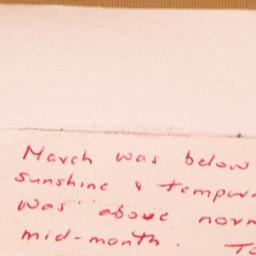 March was below
sunshine & tempur
was above norm
mid-month. To